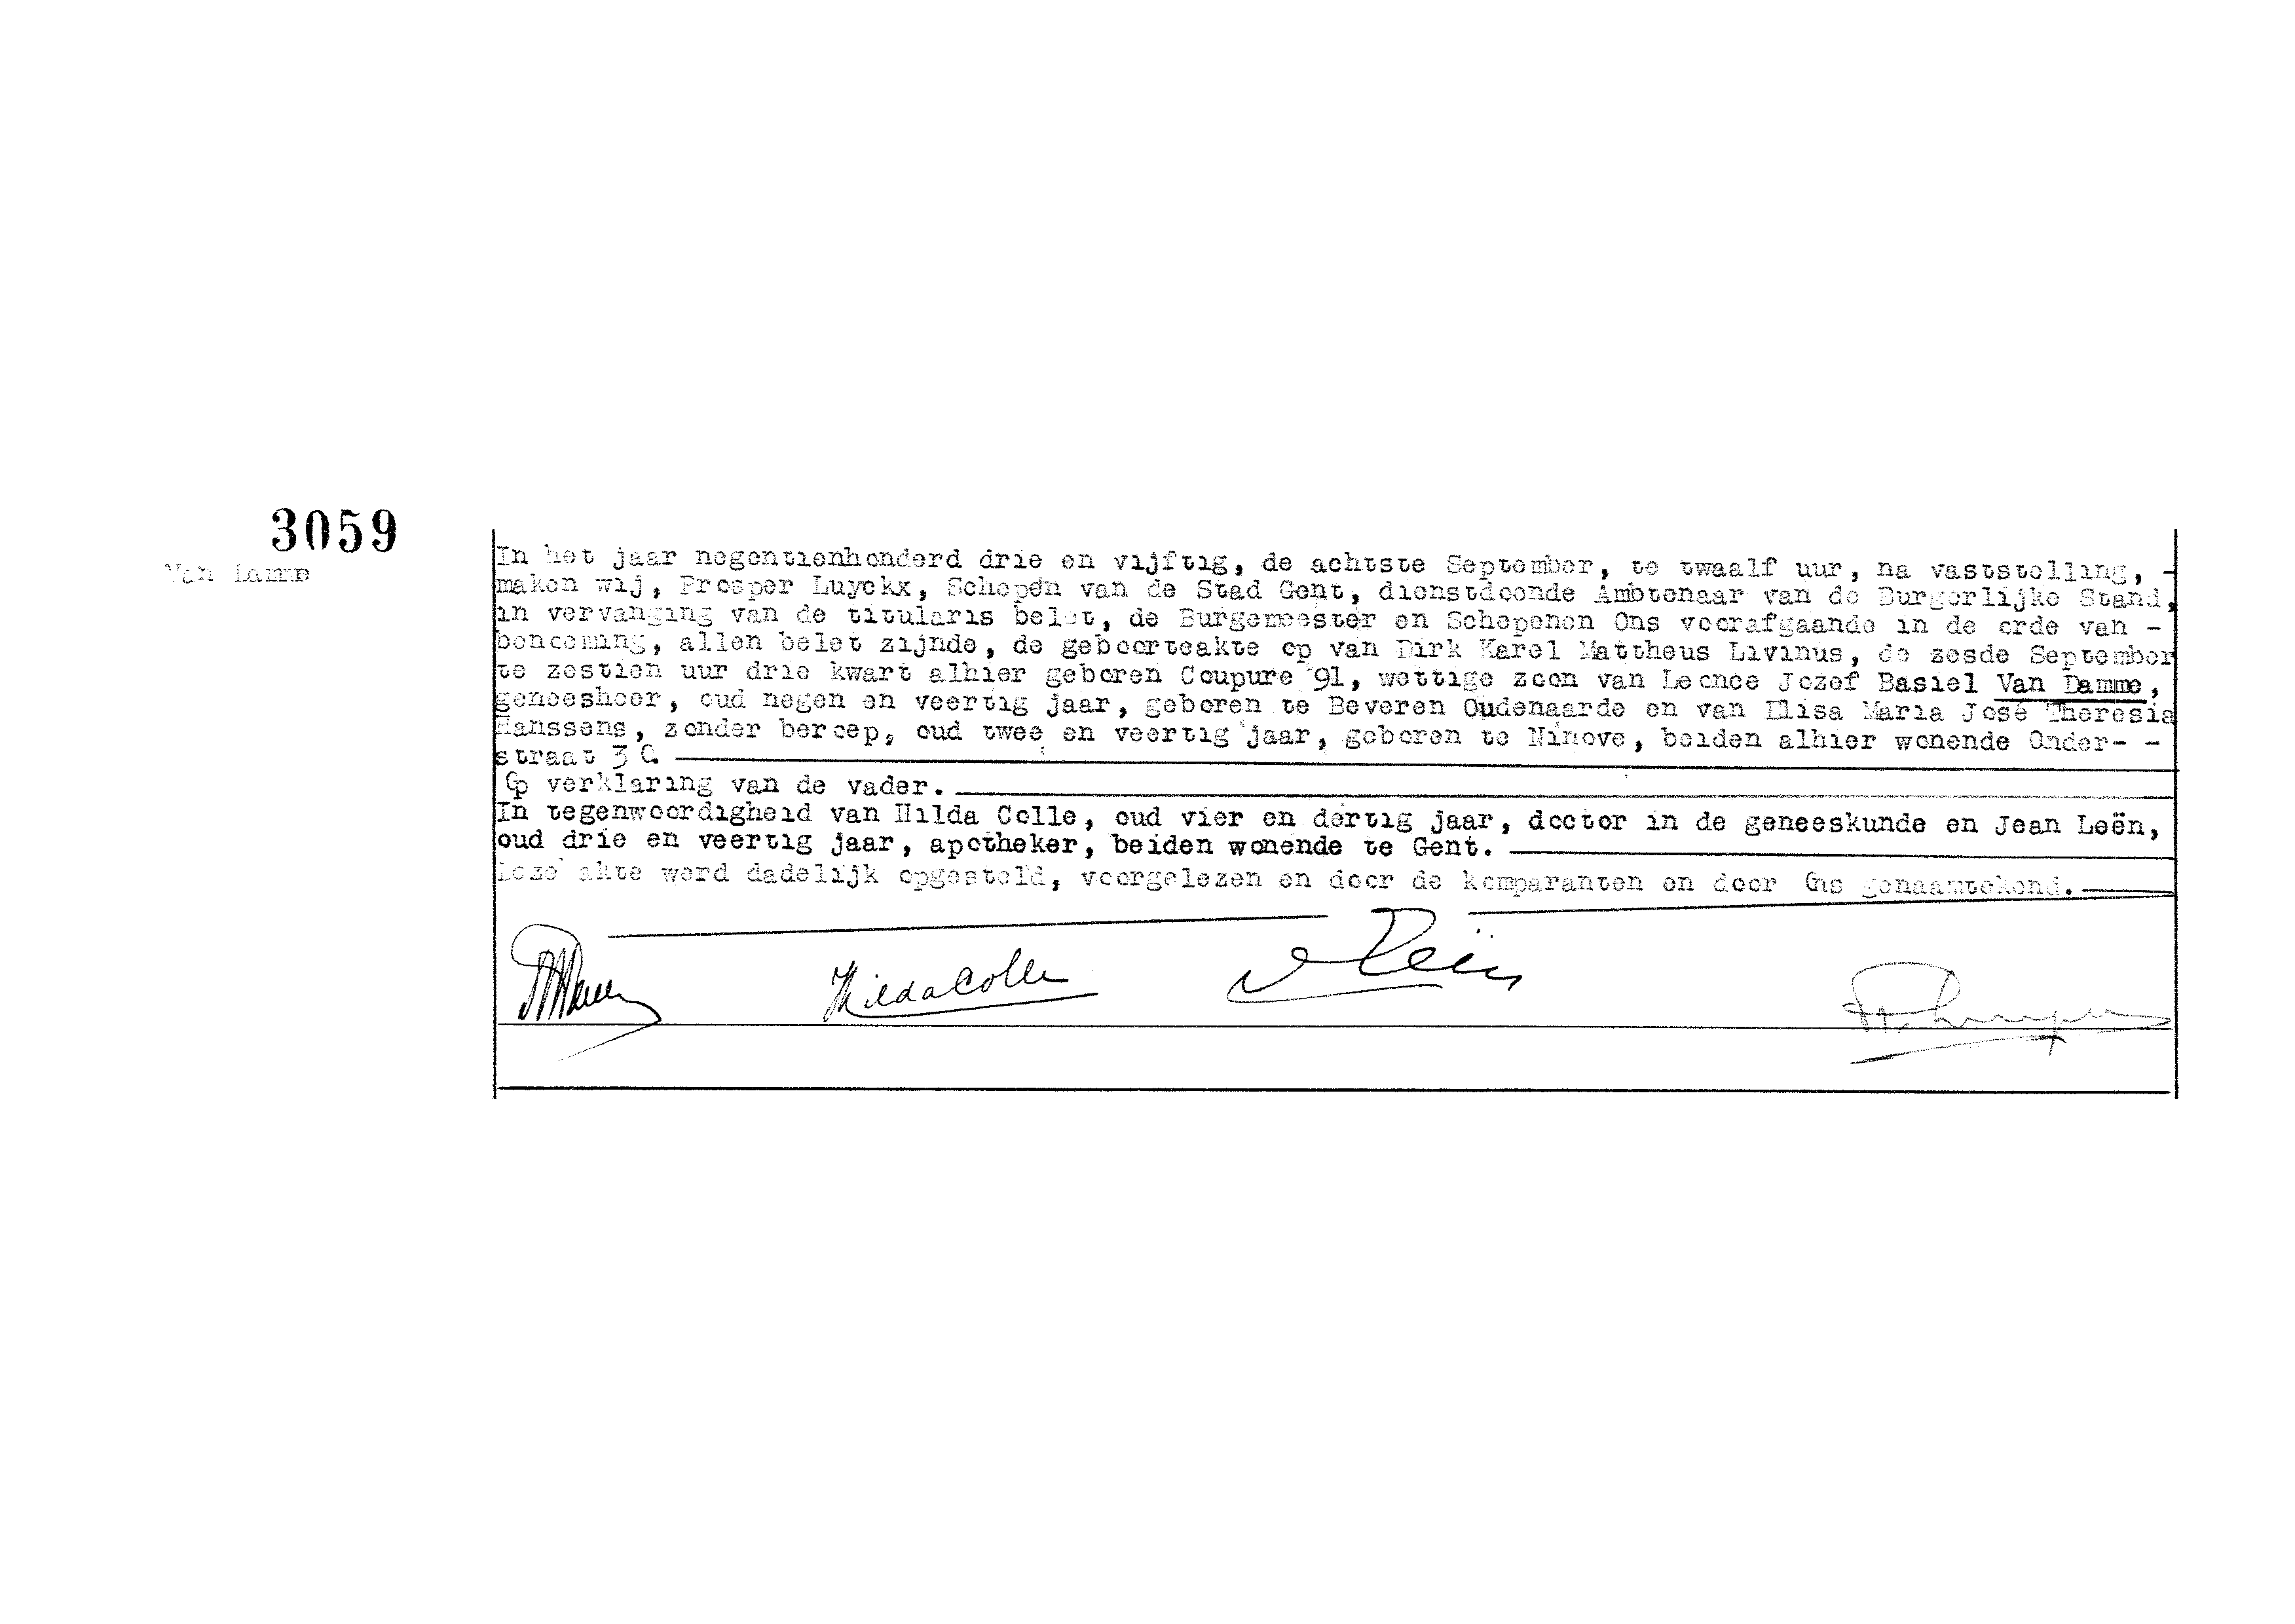 3059
Van Damme
In het jaar negentienhonderd drie en vijftig, de achtste September, te twaalf uur, na vaststelling, -
maken wij, Prosper Luyckx, Schepen van de Stad Gent, dienstdoende Ambtenaar van de Burgerlijke Stand,
in vervanging van de titularis belet, de Burgemeester en Schepenen Ons voorafgaande in de orde van -
benoeming, allen belet zijnde, de geboorteakte op van Dirk Karel Mattheus Livinus, de zesde September
te zestien uur drie kwart alhier geboren Coupure 91, wettige zoon van Leonce Jozef Basiel Van Damme,
geneesheer, oud negen en veertig jaar, geboren te Beveren Oudenaarde en van Elisa Maria José Theresia
Hanssens, zonder beroep, oud twee en veertig jaar, geboren te Ninove, beiden alhier wonende Onder- -
straat 30.
Op verklaring van de vader.
In tegenwoordigheid van Hilda Colle, oud vier en dertig jaar, doctor in de geneeskunde en Jean Leën,
oud drie en veertig jaar, apotheker, beiden wonende te Gent.
Deze akte werd dadelijk opgesteld, voorgelezen en door de komparanten en door Ons genaamtekend.
Hilda Colle Leën